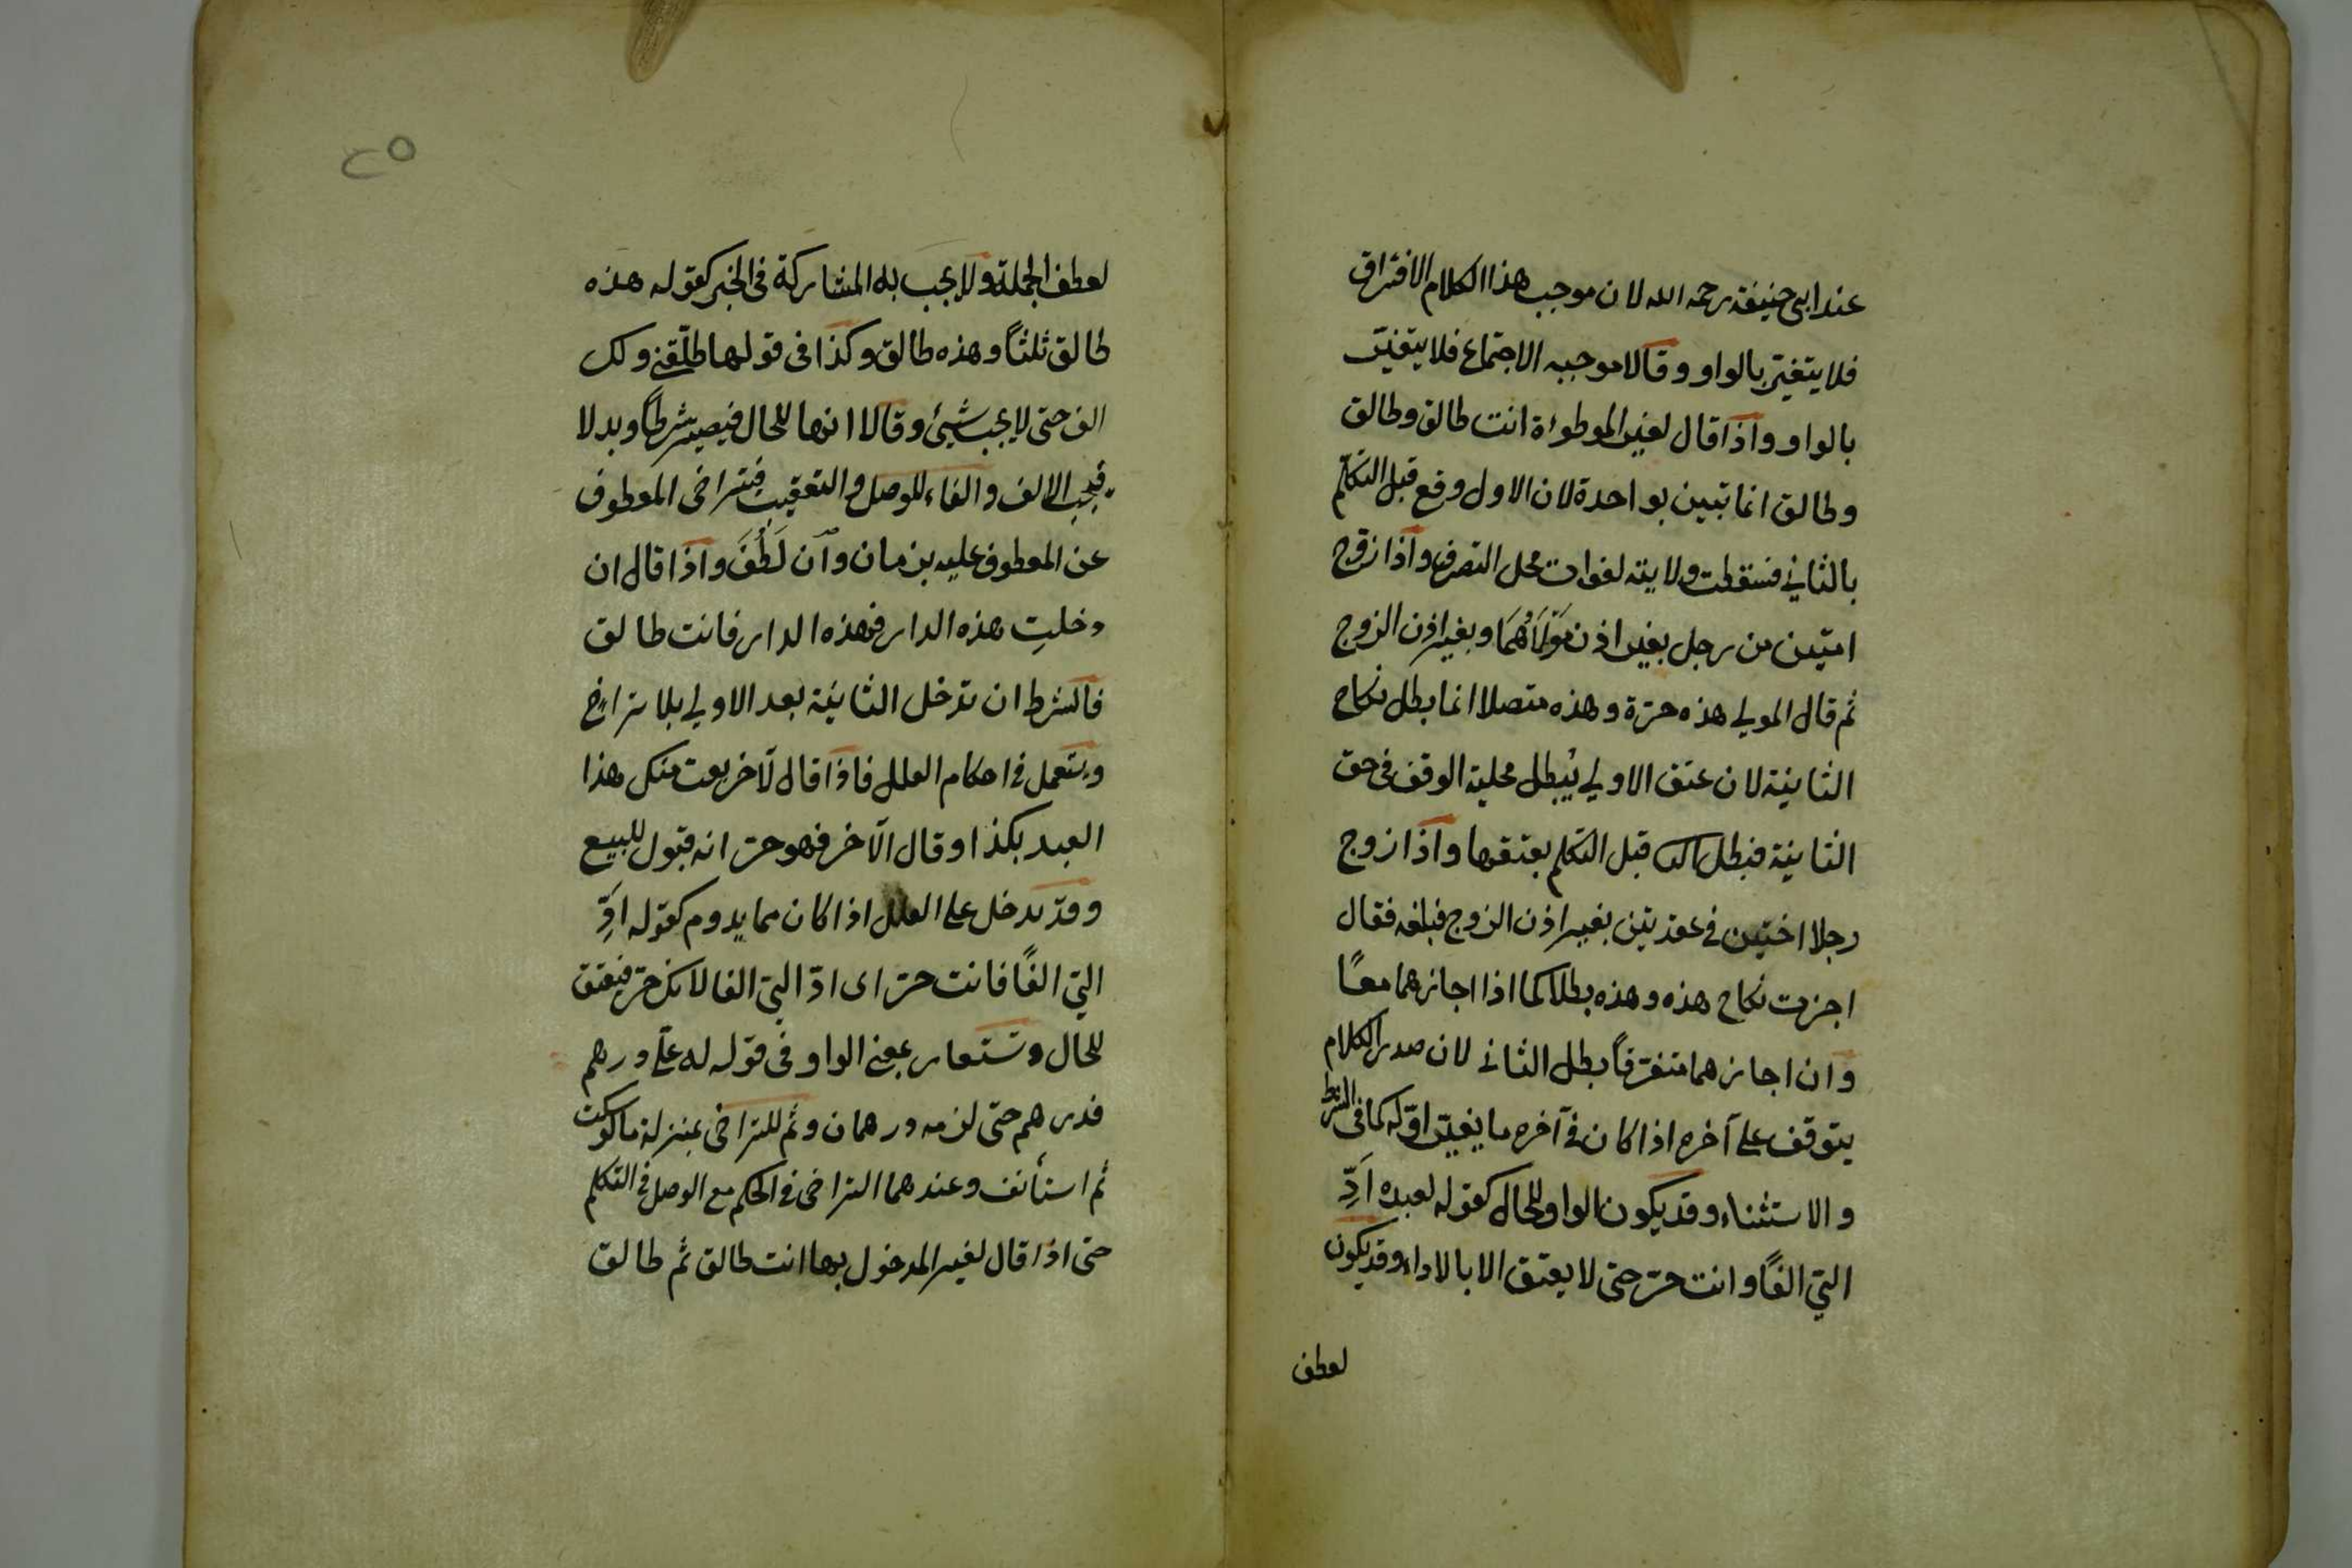 عند ابى حنيفة رحمه الله لان موجب هذا الكلام الافتراق
فلا يتغيّر بالواو وقالا موجبه الاجتماع فلا يتغيّر
بالواو واذا قال لغير الموطوءة انت طالق وطالق
وطالق انما تبين بواحدة لان الاول وقع قبل التكلّم
بالثانى فسقطت ولايته لفوات محل التصرف واذا زوّج
امتين من رجل بغير اذن مَوْلَاهُمَا وبغير اذن الزوج
ثم قال المولى هذه حرّة وهذه متصلا انما بطل نكاح
الثانية لان عتق الاولى يُبطل محلية الوقف فى حق
الثانية فبطل الثانى قبل التكلم بعتقها واذا زوج
رجلا اختين فى عقدتين بغير اذن الزوج فبلغه فقال
اجزت نكاح هذه وهذه بطلا كما اذا اجازهما معًا
وان اجازهما متفرّقاً بطل الثانى لان صدر الكلام
يتوقف على آخره اذا كان فى آخره ما يغيّر اوّله كما فى الشرط
والاستثناء وقد يكون الواو للحال كقوله لعبده اَدِّ
الىّ الفًا وانت حرّ حتى لا يعتق الا بالاداء وقد يكون
لعطف
٢٥
لعطف الجملة ولا يجب به المشاركة فى الخبر كقوله هذه
طالق ثلثًا وهذه طالق وكذا فى قولها طلّقنى ولك
الف حتى لا يجب شيئ وقالا انها للحال فيصير شرطاً وبدلا
فيجب الالف والفاء للوصل والتعقيب فيتراخى المعطوف
عن المعطوف عليه بزمان وان لَطُفَ واذا قال ان
دخلتِ هذه الدار فهذه الدار فانت طالق
فالشرط ان تدخل الثانية بعد الاولى بلا تراخٍ
ويستعمل فى احكام العلل فاذا قال لآخر بعت منك هذا
العبد بكذا وقال الآخر فهو حرّ انه قبول للبيع
وقد تدخل على العلل اذا كان مما يدوم كقوله اَدِّ
الىّ الفًا فانت حرّ اى ادّ الىّ الفا لانك حرّ فيعتق
للحال وتستعار بمعنى الواو فى قوله له علىّ درهم
فدرهم حتى لزمه درهمان وثمّ للتراخى بمنزلة ما لو سكت
ثم استأنف وعندهما التراخى فى الحكم مع الوصل فى التكلم
حتى اذا قال لغير المدخول بها انت طالق ثم طالق